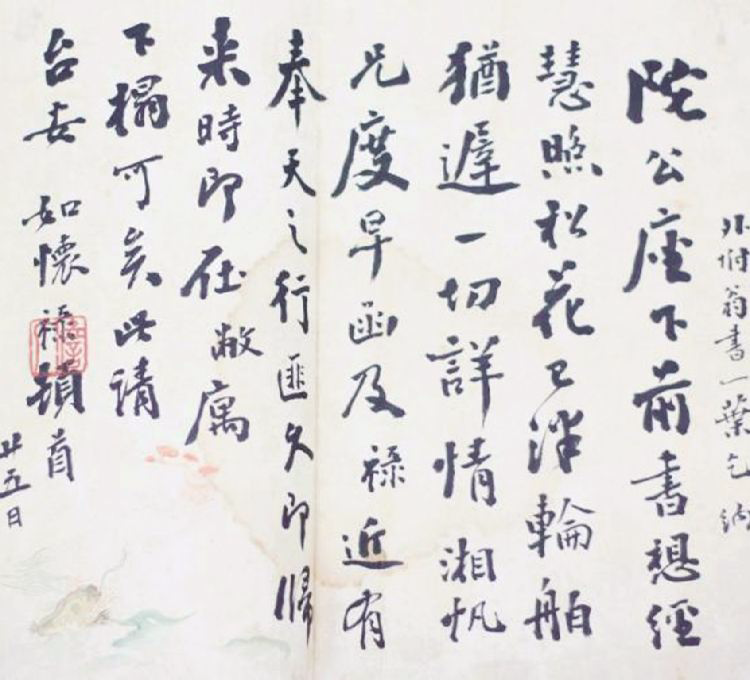 外附翁書一葉乞納
陀公座下前書想經
慧照松花已泮輪舶
猶遲一切詳情湘帆
兄度早函及祿近有
奉天之行匪久即歸
来時即在敝庽
下榻可矣此請
台安 如懷祿頓首
廿五日